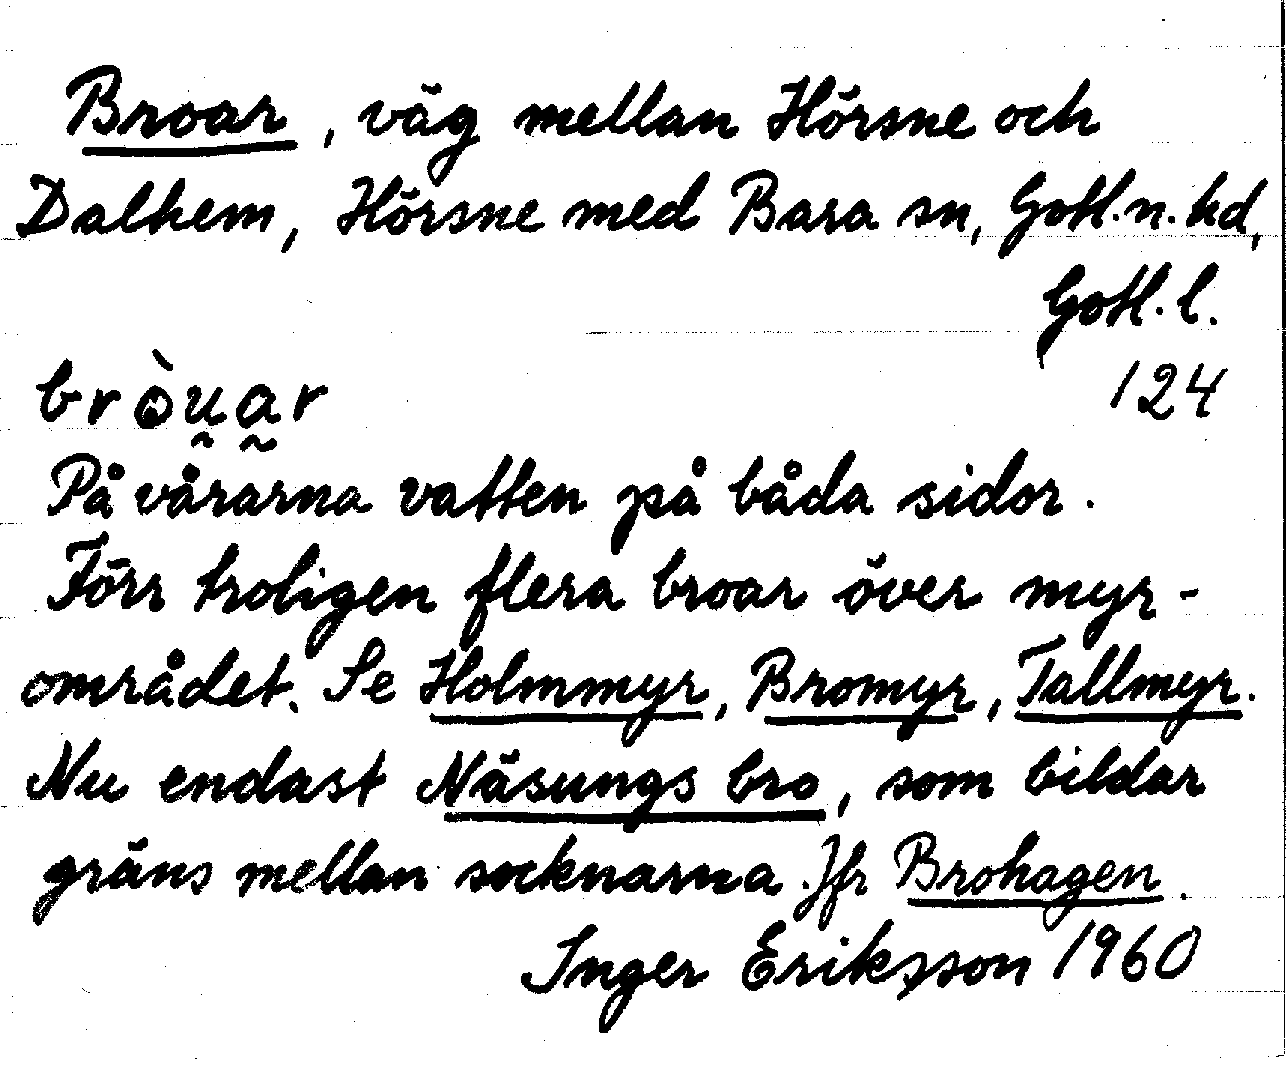 Broar, väg mellan Hörsne och
Dalhem, Hörsne med Bara sn, Gotl. n. hd,
Gotl. l.
bròu̯a̰r 124
På vårarna vatten på båda sidor.
Förr troligen flera broar över myr-
området. Se Holmmyr, Bromyr, Tallmyr.
Nu endast Näsungs bro, som bildar
gräns mellan socknarna. Jfr Brohagen.
Inger Eriksson 1960